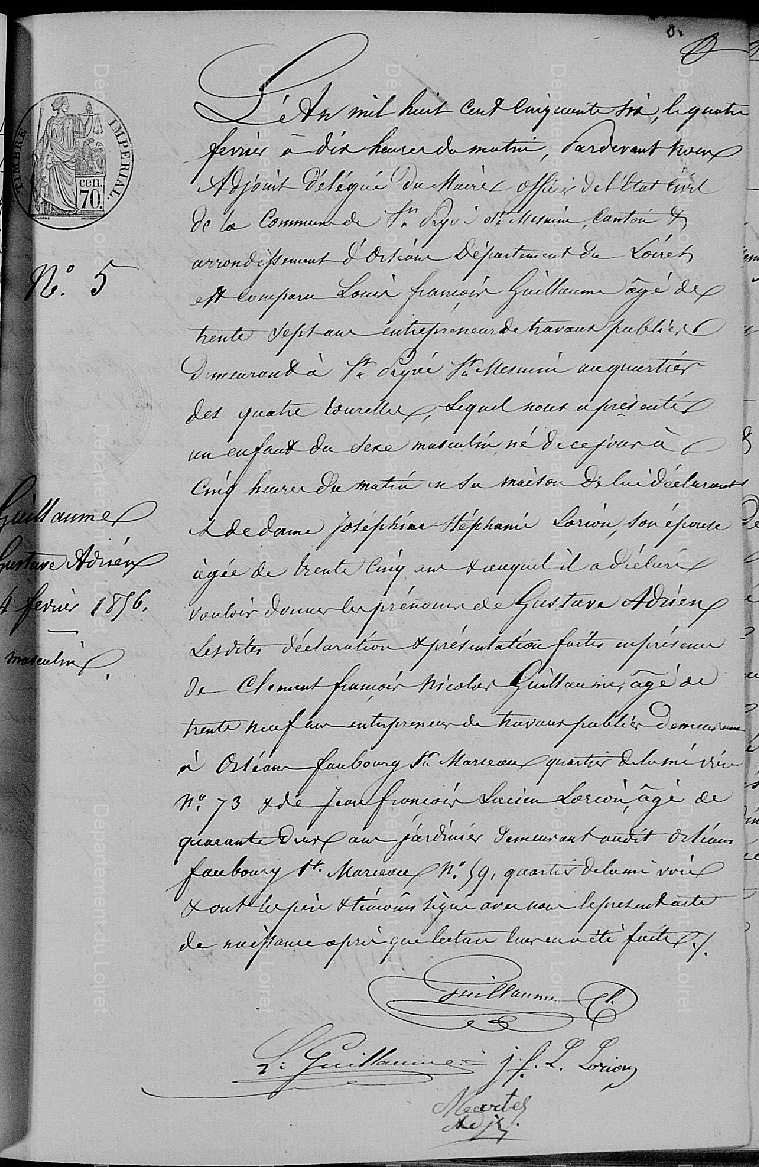 L'An mil huit cent Cinquante six, le quatre
fevrier à dix heures du matin, Pardevant nous
Adjoint Délégué du Maire officier de l'Etat Civil
de la Commune de St. Pryvé St. Mesmin, Canton &
arrondissement d'Orléans Département du Loiret,
est comparu Louis françois Guillaume âgé de
TIMBRE IMPERIAL
cen. 70.
No. 5
trente sept ans entrepreneur de travaux publics
Demeurant à St. Pryvé St. Mesmin au quartier
des quatre tourelles, Lequel nous a présenté
un enfant du Sexe masculin né de ce jour à
Cinq heures du matin en sa maison de lui déclarant
& de dame Joséphine Stéphanie Lorion, son épouse
âgée de trente Cinq ans & auquel il a déclaré
vouloir donner les prénoms de Gustave Adrien
Guillaume
Gustave Adrien
4 fevrier 1856.
masculin.
Lesdites déclaration & présentation faites en présence
de Clement françois Nicolas Guillaume, âgé de
trente neuf ans entrepreneur de travaux publics demeurant
à Orléans faubourg St. Marceau quartier de la mi voie
No. 73 & de Jean françois Lucien Lorion, âgé de
quarante deux ans jardinier demeurant audit Orléans
faubourg St. Marceau No. 59, quartier de la mi voie
& ont les père & témoins signé avec nous le présent acte
de naissance après que lecture leur en a été faite.
Guillaume
L. Guillaume j. f. L. Lorion
Adjt.
Département du Loiret